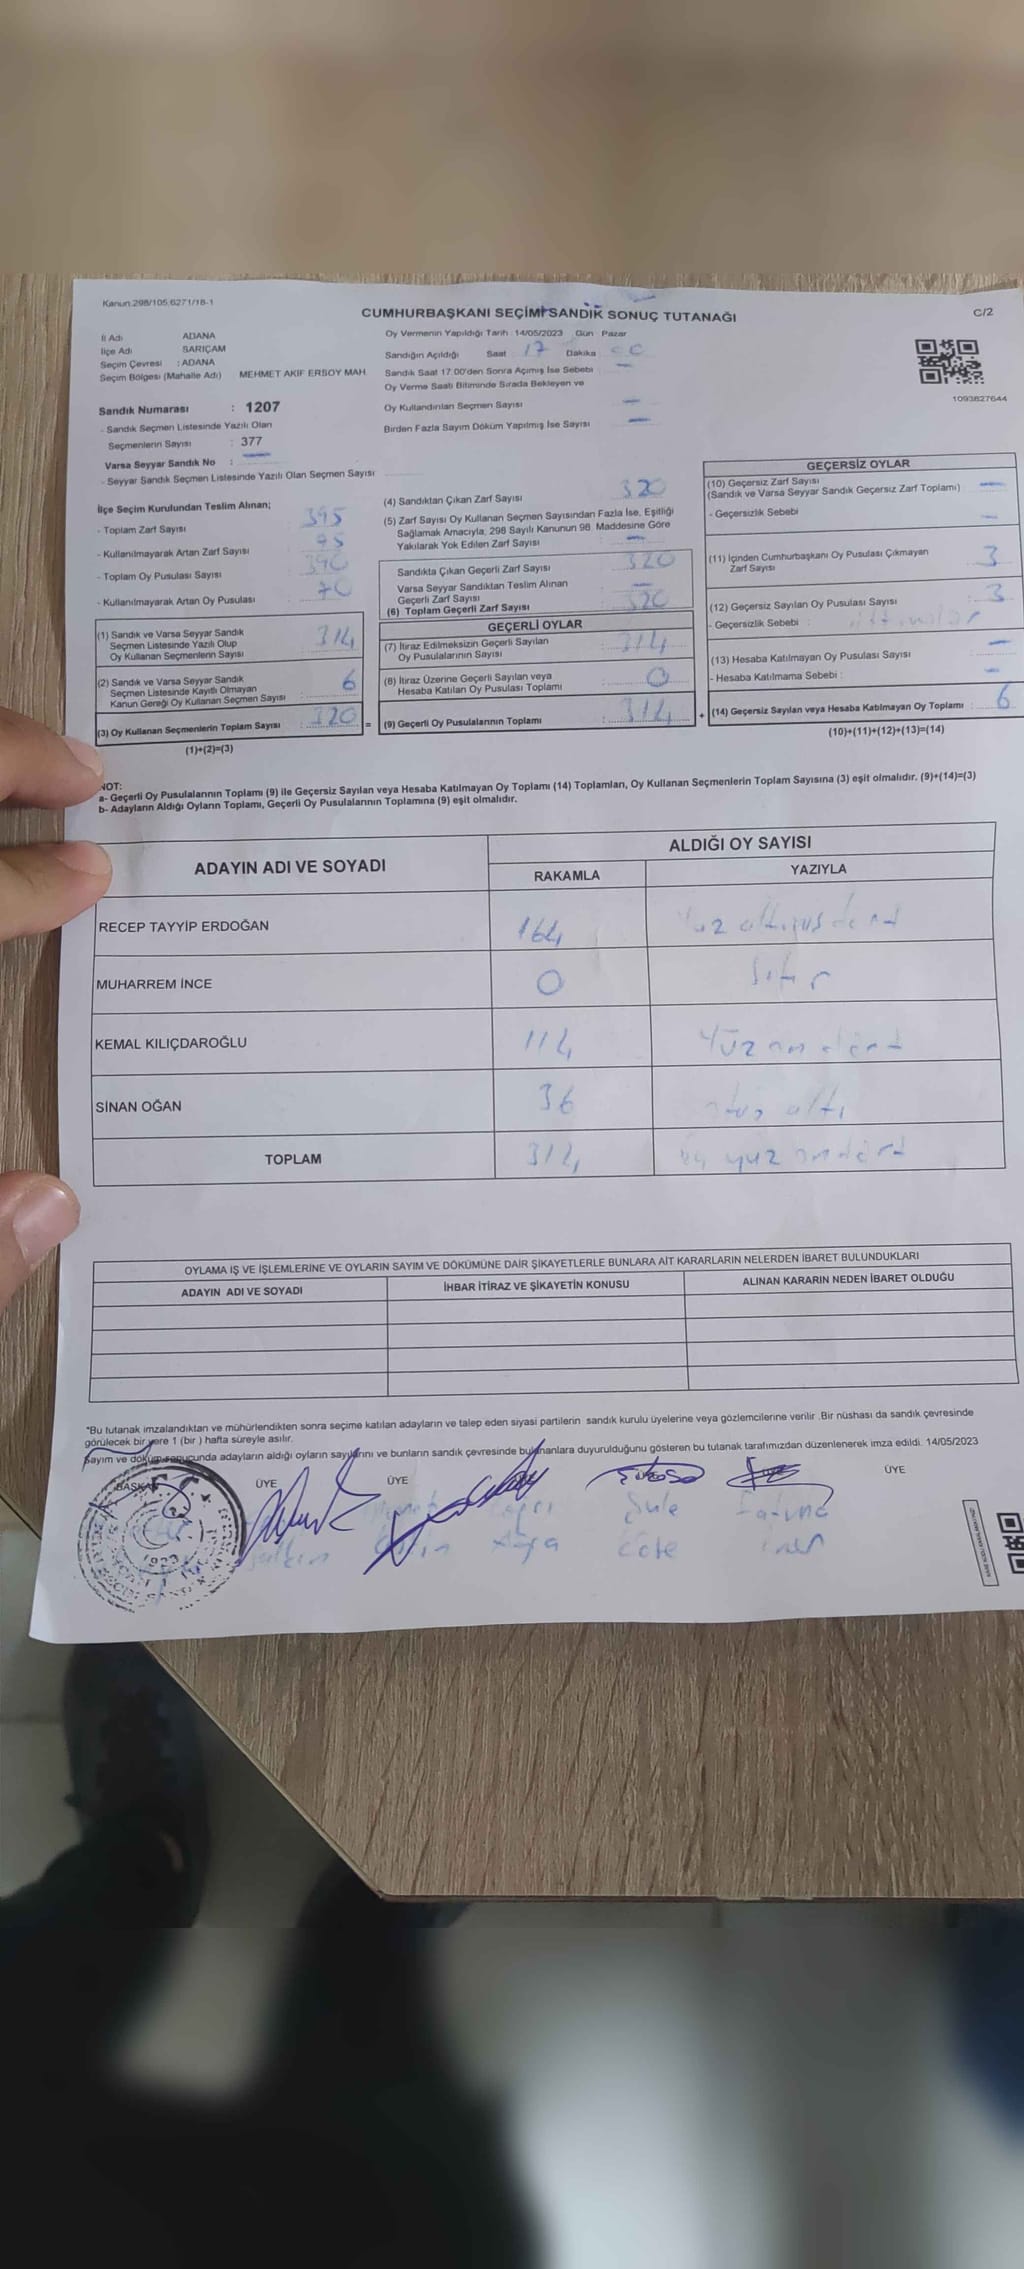 Kanun:298/105,6271/18-1
CUMHURBAŞKANI SEÇİMİ SANDIK SONUÇ TUTANAĞI
C/2
İl Adı ADANA
İlçe Adı SARIÇAM
Seçim Çevresi : ADANA
Seçim Bölgesi (Mahalle Adı) MEHMET AKİF ERSOY MAH.
Oy Vermenin Yapıldığı Tarih : 14/05/2023 Gün : Pazar
Sandığın Açıldığı Saat : 17 Dakika : 00
Sandık Saat 17:00'den Sonra Açılmış İse Sebebi : —
Oy Verme Saati Bitiminde Sırada Bekleyen ve
Oy Kullandırılan Seçmen Sayısı —
Birden Fazla Sayım Döküm Yapılmış İse Sayısı —
1093827644
Sandık Numarası : 1207
- Sandık Seçmen Listesinde Yazılı Olan
Seçmenlerin Sayısı : 377
Varsa Seyyar Sandık No : —
- Seyyar Sandık Seçmen Listesinde Yazılı Olan Seçmen Sayısı
İlçe Seçim Kurulundan Teslim Alınan;
- Toplam Zarf Sayısı 395
- Kullanılmayarak Artan Zarf Sayısı 75
- Toplam Oy Pusulası Sayısı 390
- Kullanılmayarak Artan Oy Pusulası 70
(1) Sandık ve Varsa Seyyar Sandık
Seçmen Listesinde Yazılı Olup
Oy Kullanan Seçmenlerin Sayısı 314
(2) Sandık ve Varsa Seyyar Sandık
Seçmen Listesinde Kayıtlı Olmayan
Kanun Gereği Oy Kullanan Seçmen Sayısı : 6
(3) Oy Kullanan Seçmenlerin Toplam Sayısı : 320 =
(1)+(2)=(3)
(4) Sandıktan Çıkan Zarf Sayısı 320
(5) Zarf Sayısı Oy Kullanan Seçmen Sayısından Fazla İse, Eşitliği
Sağlamak Amacıyla, 298 Sayılı Kanunun 98. Maddesine Göre
Yakılarak Yok Edilen Zarf Sayısı —
Sandıkta Çıkan Geçerli Zarf Sayısı : 320
Varsa Seyyar Sandıktan Teslim Alınan
Geçerli Zarf Sayısı —
(6) Toplam Geçerli Zarf Sayısı : 320
GEÇERLİ OYLAR
(7) İtiraz Edilmeksizin Geçerli Sayılan
Oy Pusulalarının Sayısı : 314
(8) İtiraz Üzerine Geçerli Sayılan veya
Hesaba Katılan Oy Pusulası Toplamı : 0
(9) Geçerli Oy Pusulalarının Toplamı : 314 +
GEÇERSİZ OYLAR
(10) Geçersiz Zarf Sayısı
(Sandık ve Varsa Seyyar Sandık Geçersiz Zarf Toplamı) —
- Geçersizlik Sebebi —
(11) İçinden Cumhurbaşkanı Oy Pusulası Çıkmayan
Zarf Sayısı 3
(12) Geçersiz Sayılan Oy Pusulası Sayısı : 3
- Geçersizlik Sebebi :
(13) Hesaba Katılmayan Oy Pusulası Sayısı —
- Hesaba Katılmama Sebebi : —
(14) Geçersiz Sayılan veya Hesaba Katılmayan Oy Toplamı : 6
(10)+(11)+(12)+(13)=(14)
NOT:
a- Geçerli Oy Pusulalarının Toplamı (9) ile Geçersiz Sayılan veya Hesaba Katılmayan Oy Toplamı (14) Toplamları, Oy Kullanan Seçmenlerin Toplam Sayısına (3) eşit olmalıdır. (9)+(14)=(3)
b- Adayların Aldığı Oyların Toplamı, Geçerli Oy Pusulalarının Toplamına (9) eşit olmalıdır.
ADAYIN ADI VE SOYADI
ALDIĞI OY SAYISI
RAKAMLA YAZIYLA
RECEP TAYYİP ERDOĞAN 164 Yüz altmış dört
MUHARREM İNCE 0 Sıfır
KEMAL KILIÇDAROĞLU 114 Yüz on dört
SİNAN OĞAN 36 otuz altı
TOPLAM 314 üç yüz on dört
OYLAMA İŞ VE İŞLEMLERİNE VE OYLARIN SAYIM VE DÖKÜMÜNE DAİR ŞİKAYETLERLE BUNLARA AİT KARARLARIN NELERDEN İBARET BULUNDUKLARI
ADAYIN ADI VE SOYADI İHBAR İTİRAZ VE ŞİKAYETİN KONUSU ALINAN KARARIN NEDEN İBARET OLDUĞU
*Bu tutanak imzalandıktan ve mühürlendikten sonra seçime katılan adayların ve talep eden siyasi partilerin sandık kurulu üyelerine veya gözlemcilerine verilir .Bir nüshası da sandık çevresinde
görülecek bir yere 1 (bir ) hafta süreyle asılır.
Sayım ve döküm sonucunda adayların aldığı oyların sayılarını ve bunların sandık çevresinde bulunanlara duyurulduğunu gösteren bu tutanak tarafımızdan düzenlenerek imza edildi. 14/05/2023
BAŞKAN ÜYE ÜYE ÜYE
Şule Fatma
1923